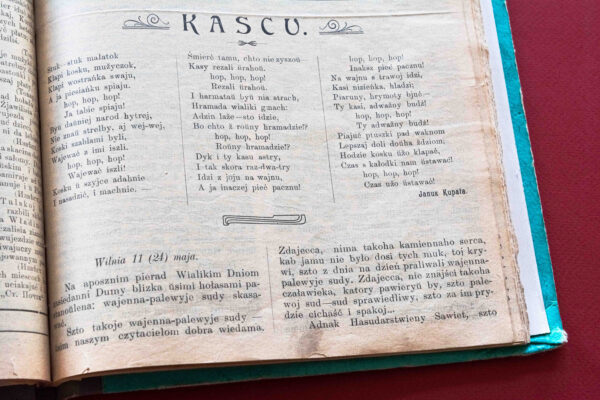 KASCU.
Stuk—stuk małatok
Klapi kosku, mužyczok,
Klapi wostrańka swaju,
A ja piesiańku spiaju.
hop, hop, hop!
Ja tabie spiaju!
Byŭ daŭniej narod hytrej,
Nie znaŭ strelby, aj wej-wej,
Kiski szahłami byli,
Wajewać z imi iszli.
hop, hop, hop!
Wajewać iszli!
Kosku ŭ szyjce adahnie
I nasadzić, i machnie. —
Śmierć tamu, chto nie zyszoŭ
Kasy rezali ŭrahoŭ.
hop, hop, hop!
Rezali ŭrahoŭ.
I harmataŭ byŭ nia strach,
Hramada wialiki gmach:
Adzin laże—sto idzie,
Bo chto ž roŭny hramadzie!?
hop, hop, hop!
Roŭny hramadzie!?
Dyk i ty kasu astry,
I tak skora raz-dwa-try
Idzi z joju na wajnu,
A ja inaczej pieć pacznu!
hop, hop, hop!
Inaksz pieć pacznu!
Na wajnu s trawoj idzi,
Kasi nizieńka, hladzi;
Piaruny, hrymoty bjuć—
Ty kasi, adważny budź!
hop, hop, hop!
Ty adważny budź!
Piajuć ptuszki pad waknom
Lepszaj doli doŭha ždziom;
Hodzie kosku ŭžo klapać,
Czas s kałodki nam ŭstawać!
hop, hop, hop!
Czas užo ŭstawać!
Januk Kupała.
Wilnia 11 (24) maja.
Na aposznim pierad Wialikim Dniom
pasiedanni Dumy blizka ŭsimi hołasami pa-
stanoŭlena: wajenna-palewyje sudy skasa-
wać.
Szto takoje wajenna-palewyje sudy —
usim naszym czytaciełom dobra wiedama.
Zdajecca, nima takoha kamiennaho serca,
kab jamu nie było dosi tych muk, toj kry-
wi, szto z dnia na dzień praliwali wajenna-
palewyje sudy. Zdajecca, nie znajści takoha
czaławieka, katory pawieryŭ by, szto pale-
woj sud—sud sprawiedliwy, szto za im pry-
dzie cichaść i spakoj...
Adnak Hasudarstwieny Sawiet, szto